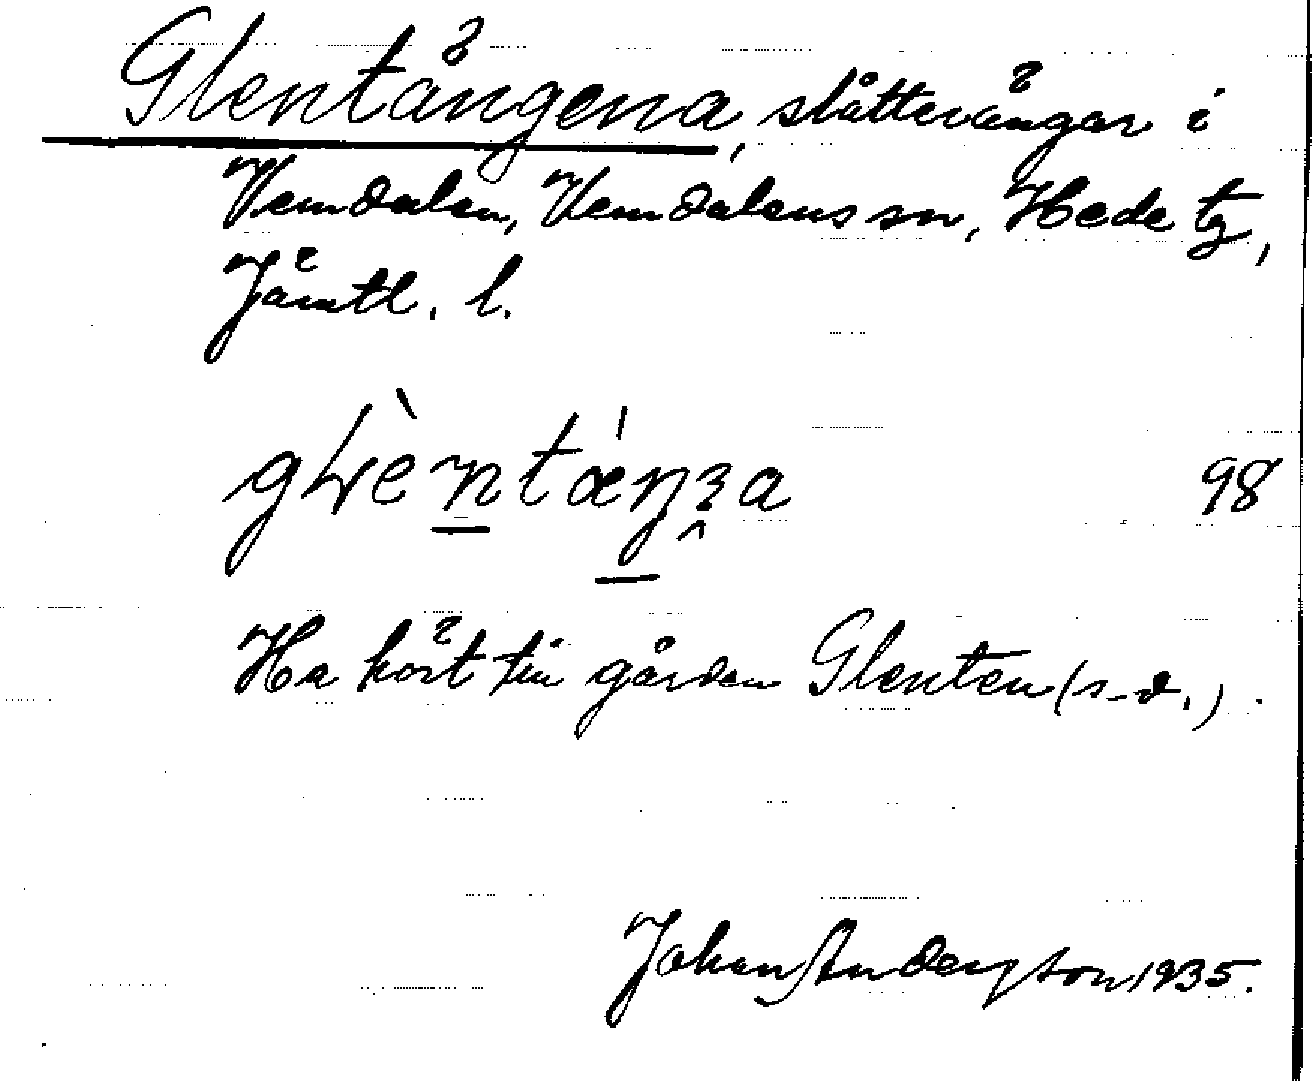 Glentängena, slåttevängar i
Vemdalen, Vemdalens sn, Hede tg,
Jämtl. l.
98
Ha hört till gården Glenten (s.d.).
Johan Anderson 1935.